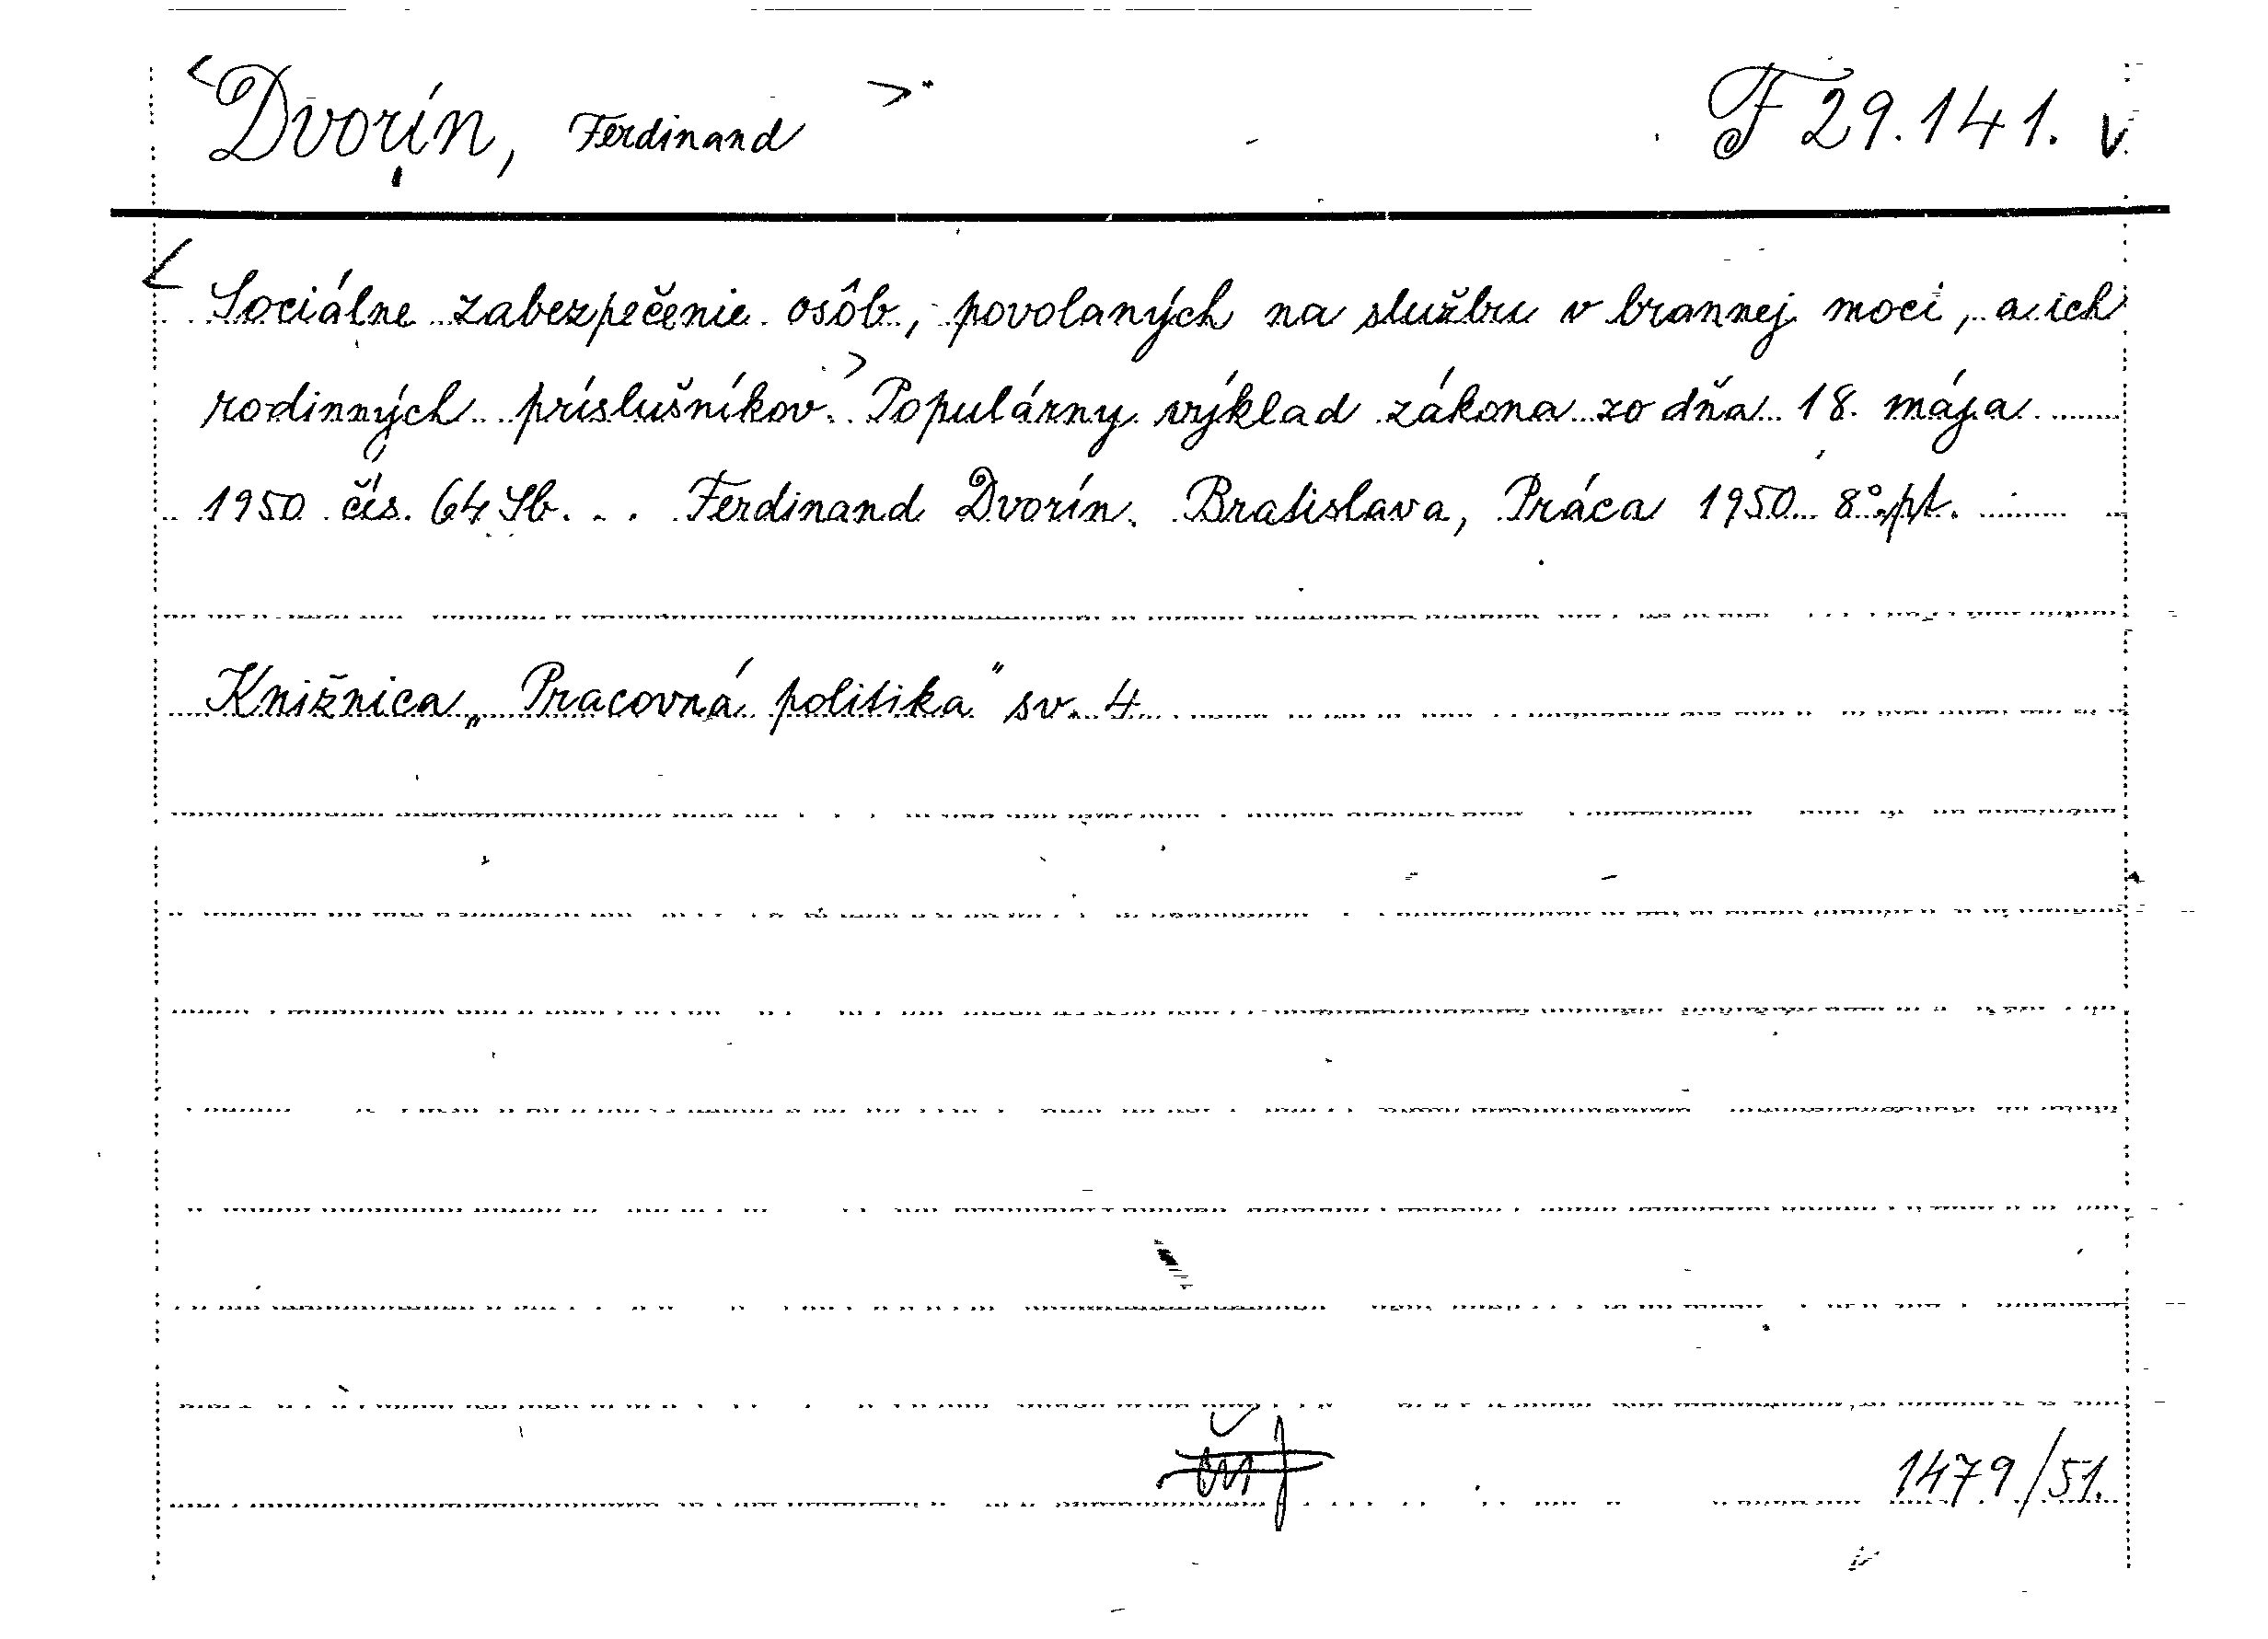 <Dvorín, Ferdinand> F 29.141. v
<Sociálne zabezpečenie osôb, povolaných na službu v brannej moci, a ich
rodinných príslušníkov.> Populárny výklad zákona zo dňa 18. mája
1950 čís. 64 Sb. .. Ferdinand Dvorín. Bratislava, Práca 1950 8° pt.
Knižnica „Pracovná politika" sv. 4
1479/51.